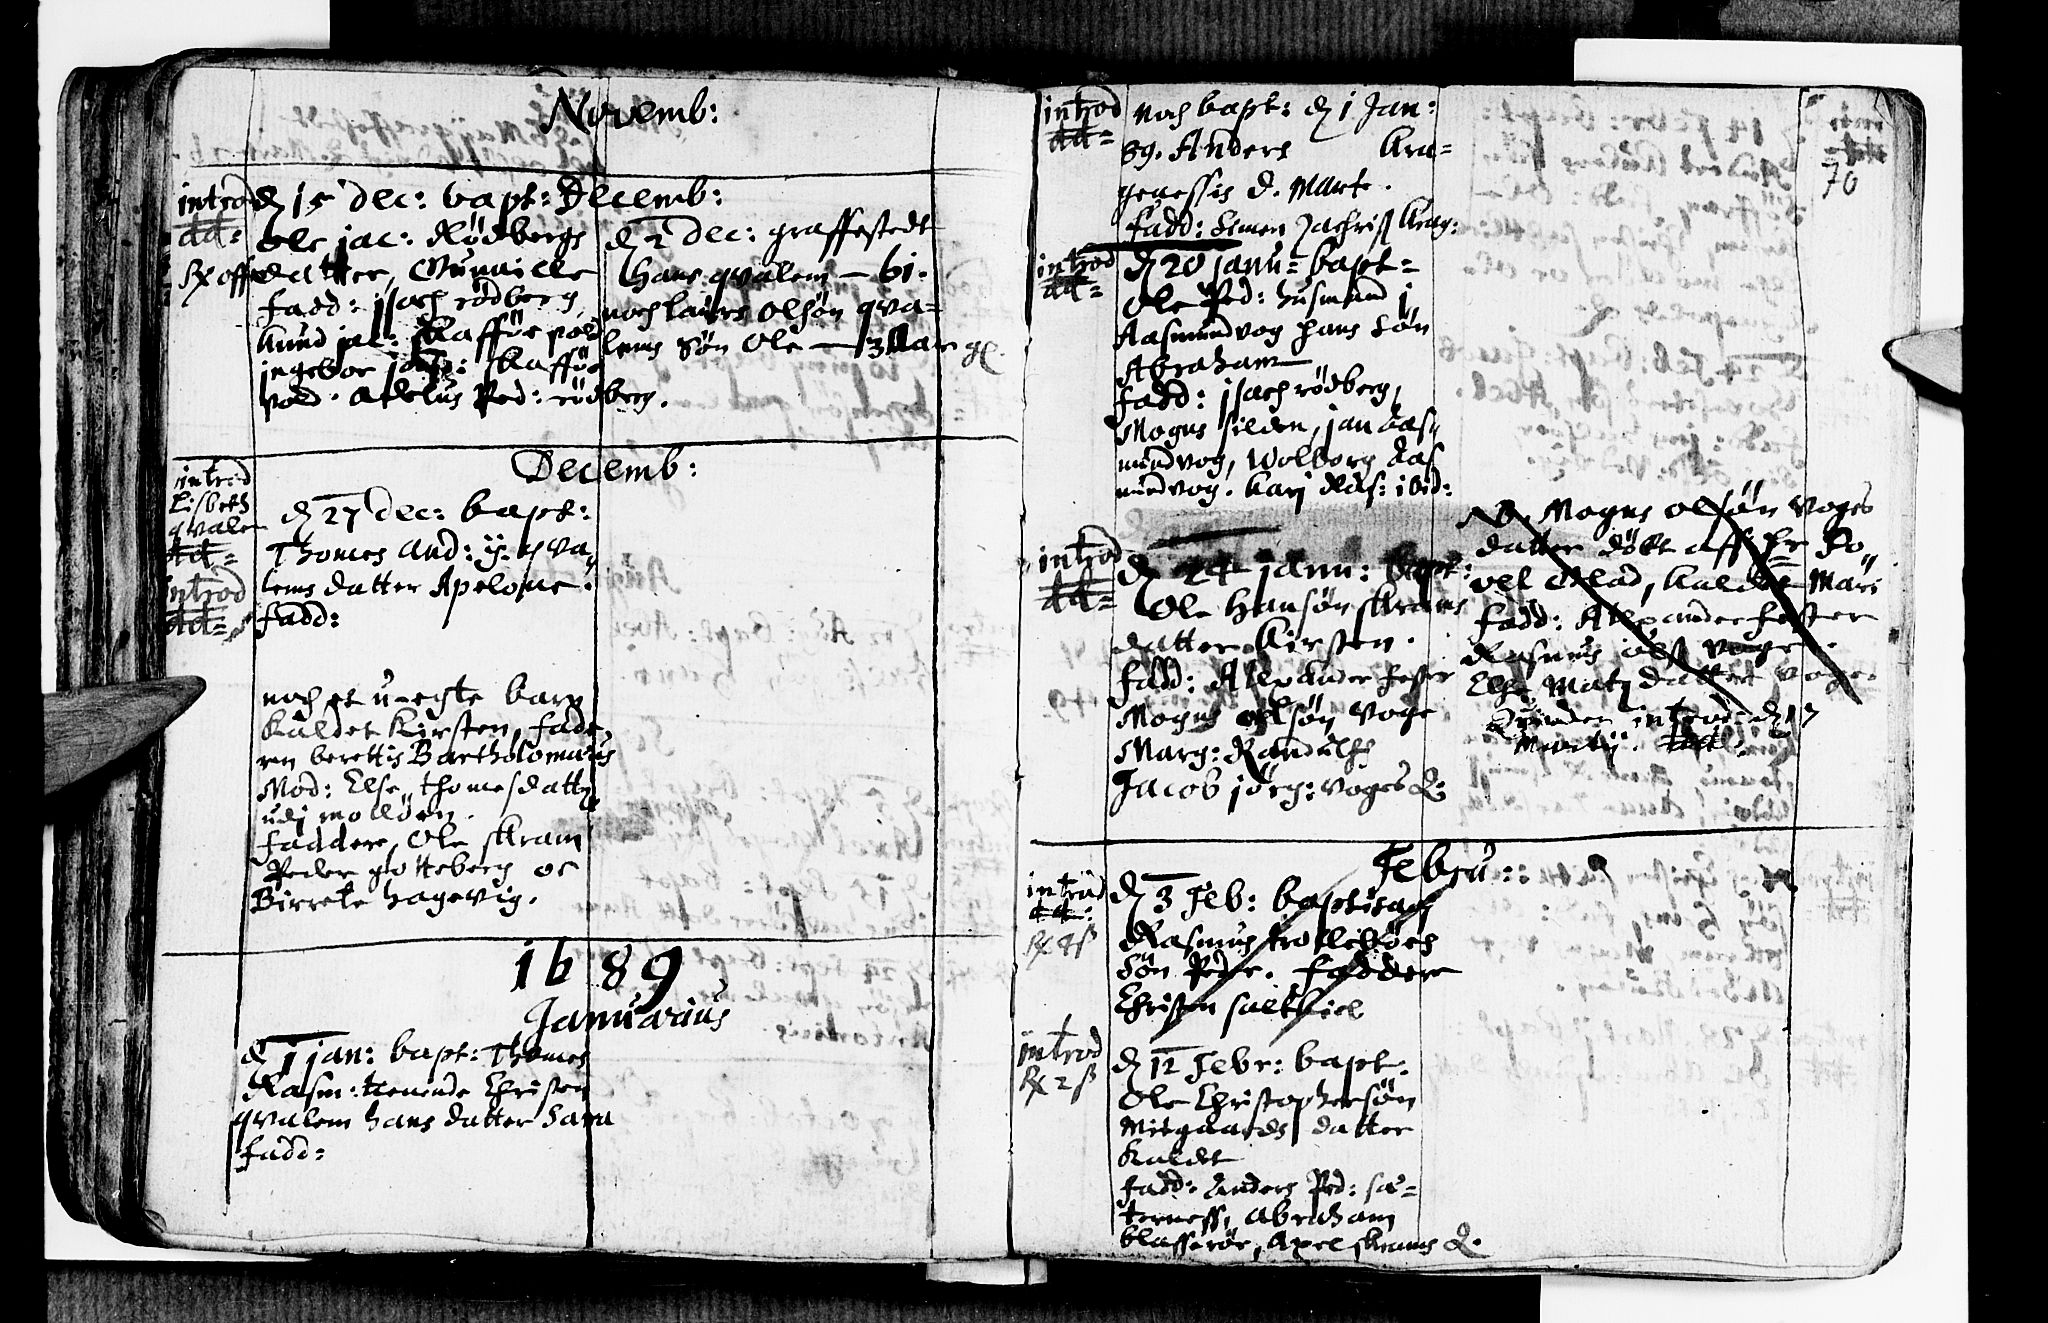 Novemb:
introd
dd=
d 15 dec: bapt: Decemb:
Ole jac: Rødbergs
datter, Gunnille
fadd: jsach rødberg
knud jac:
jngebor
vold. Ped: rødberg.
d 2 dec: graffestedt
Hans qvalem — 61.
noch laurs olsøn qva-
lems søn Ole — 3 Aar
Decemb:
introd
Lisbeth
qvale
dd=
introd
dd=
d 27 dec: bapt:
Thomes And: qva-
lems datter Apelone.
fadd:
noch et u-echte barn
kaldet Kirsten, fade-
ren berettis Bartholomæus
Mod: Else Thomesdatter
udj
faddere, Ole skram
Peder gotteberg oc
Birrete hagevig.
1689
Januarius
d 1 jan: bapt: Thomes
Rasm: tienende Christen
qvalem hans datter Sara
fadd:
70
introd
dd=
noch bapt: d 1 Jan:
89. Anders kra-
genessis d. Marte.
fadd: Simen Zachriss krag:
introd
dd=
d 20 janu= bapt=
Ole Ped: husmand j
Aasmundvog hans søn
Abraham
fadd: jsach rødberg,
Mogns silden, jan Aas-
mundvog, Wolborg Aas
mundvog. karj Ras: ibid:
introd
dd=
d 24 janu: bapt:
Ole Hansøn skrams
datter Kirsten.
fadd: Alexander
Mogns olsøn voge
Marg: Randulff
Jacob jørg: voges Q:
NB. Mogns olsøn voges
datter døbt aff Hr Po-
vel Glad, kaldet Mari
fadd: Alexander
Rasmus olss voge.
Else Matz datter voge.
Qvinden introd: d 17
Martij.
Febru::
introd
dd:
d 3 Feb: baptisat
Rasmus
søn Peder. faddere
Christen
introd
2 ß
d 12 Febr: bapt.
Ole Christophersøn
Mitgaards datter
kaldet
fadd: Anders Ped: sæ-
terness, Abraham
Axel skrams Q.